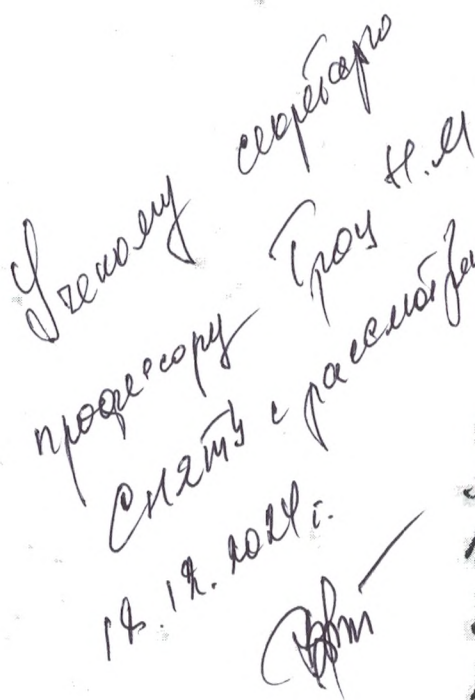 Ученому секретарю
професору Троц Н.М
Снять с рассмотре
12.12.2024 г.